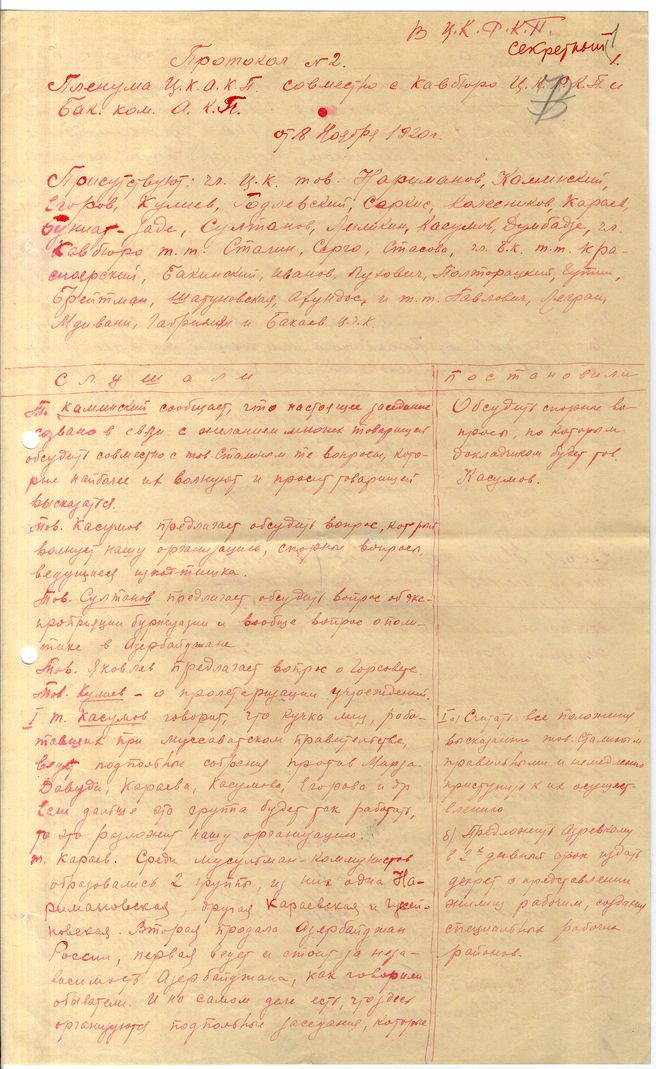 В Ц.К.Р.К.П.
Секретный
1.
Протокол №2.
Пленума Ц.К.А.К.П. совместно с Кавбюро Ц.К.Р.К.П и
Бак. ком. А.К.П.
от 8 Ноября 1920 г.
Присутствуют: чл. Ц.К. тов. Нариманов, Каминский,
Егоров, Кулиев, Саркис, Колесников, Караев,
заде, Султанов, Касумов, Думбадзе, чл.
Кавбюро т.т. Сталин, Серго, Стасова, чл. Б.К. т.т. Кра-
сноярский, Бакинский, Иванов, Пухович, Полторацкий,
Брейтман, Шатуновская, Ахундов, и т.т. Павлович, Легран,
Мдивани, Габриелян и Бакаев
Слушали
Т. Каминский сообщает, что настоящее заседание
созвано в связи с желанием многих товарищей
обсудить совместно с тов. Сталиным те вопросы, кото-
рые наиболее их волнуют и просит товарищей
высказаться.
Тов. Касумов предлагает обсудить вопрос, который
волнует нашу организацию, спорные вопросы,
ведущиеся изподтишка.
Тов. Султанов предлагает обсудить вопрос об экс-
проприации буржуазии и вообще вопрос о поли-
тике в Азербайджане
Тов. Яковлев предлагает вопрос о Горсовете.
Тов. Кулиев – о пролетаризации учреждений.
I т. Касумов говорит, что кучка лиц, рабо-
тавших при муссаватском правительстве,
ведет подпольные собрания против Мирза-
Давуда, Караева, Касумова, Егорова и др
Если дальше эта группа будет так работать,
то это разложит нашу организацию.
т. Караев. Среди мусульман-коммунистов
образовались 2 группы, из них одна На-
римановская, другая Караевская и Гусей-
новская. Вторая продала Азербайджан
России, первая ведет и стоит за неза-
висимость Азербайджана, как говорили
обыватели. И на самом деле есть, что здесь
организуются подпольные заседания, которые
Постановили
Обсудить спорные во-
просы, по которым
докладчиком будет тов
Касумов.
I а) Считать все положения
высказанные тов. Сталиным
правильными и немедленно
приступить к их осущест-
влению
б) Предложить Азревкому
в 2х дневный срок издать
декрет о представлении
жилищ рабочим, создании
специальных рабочих
районов.